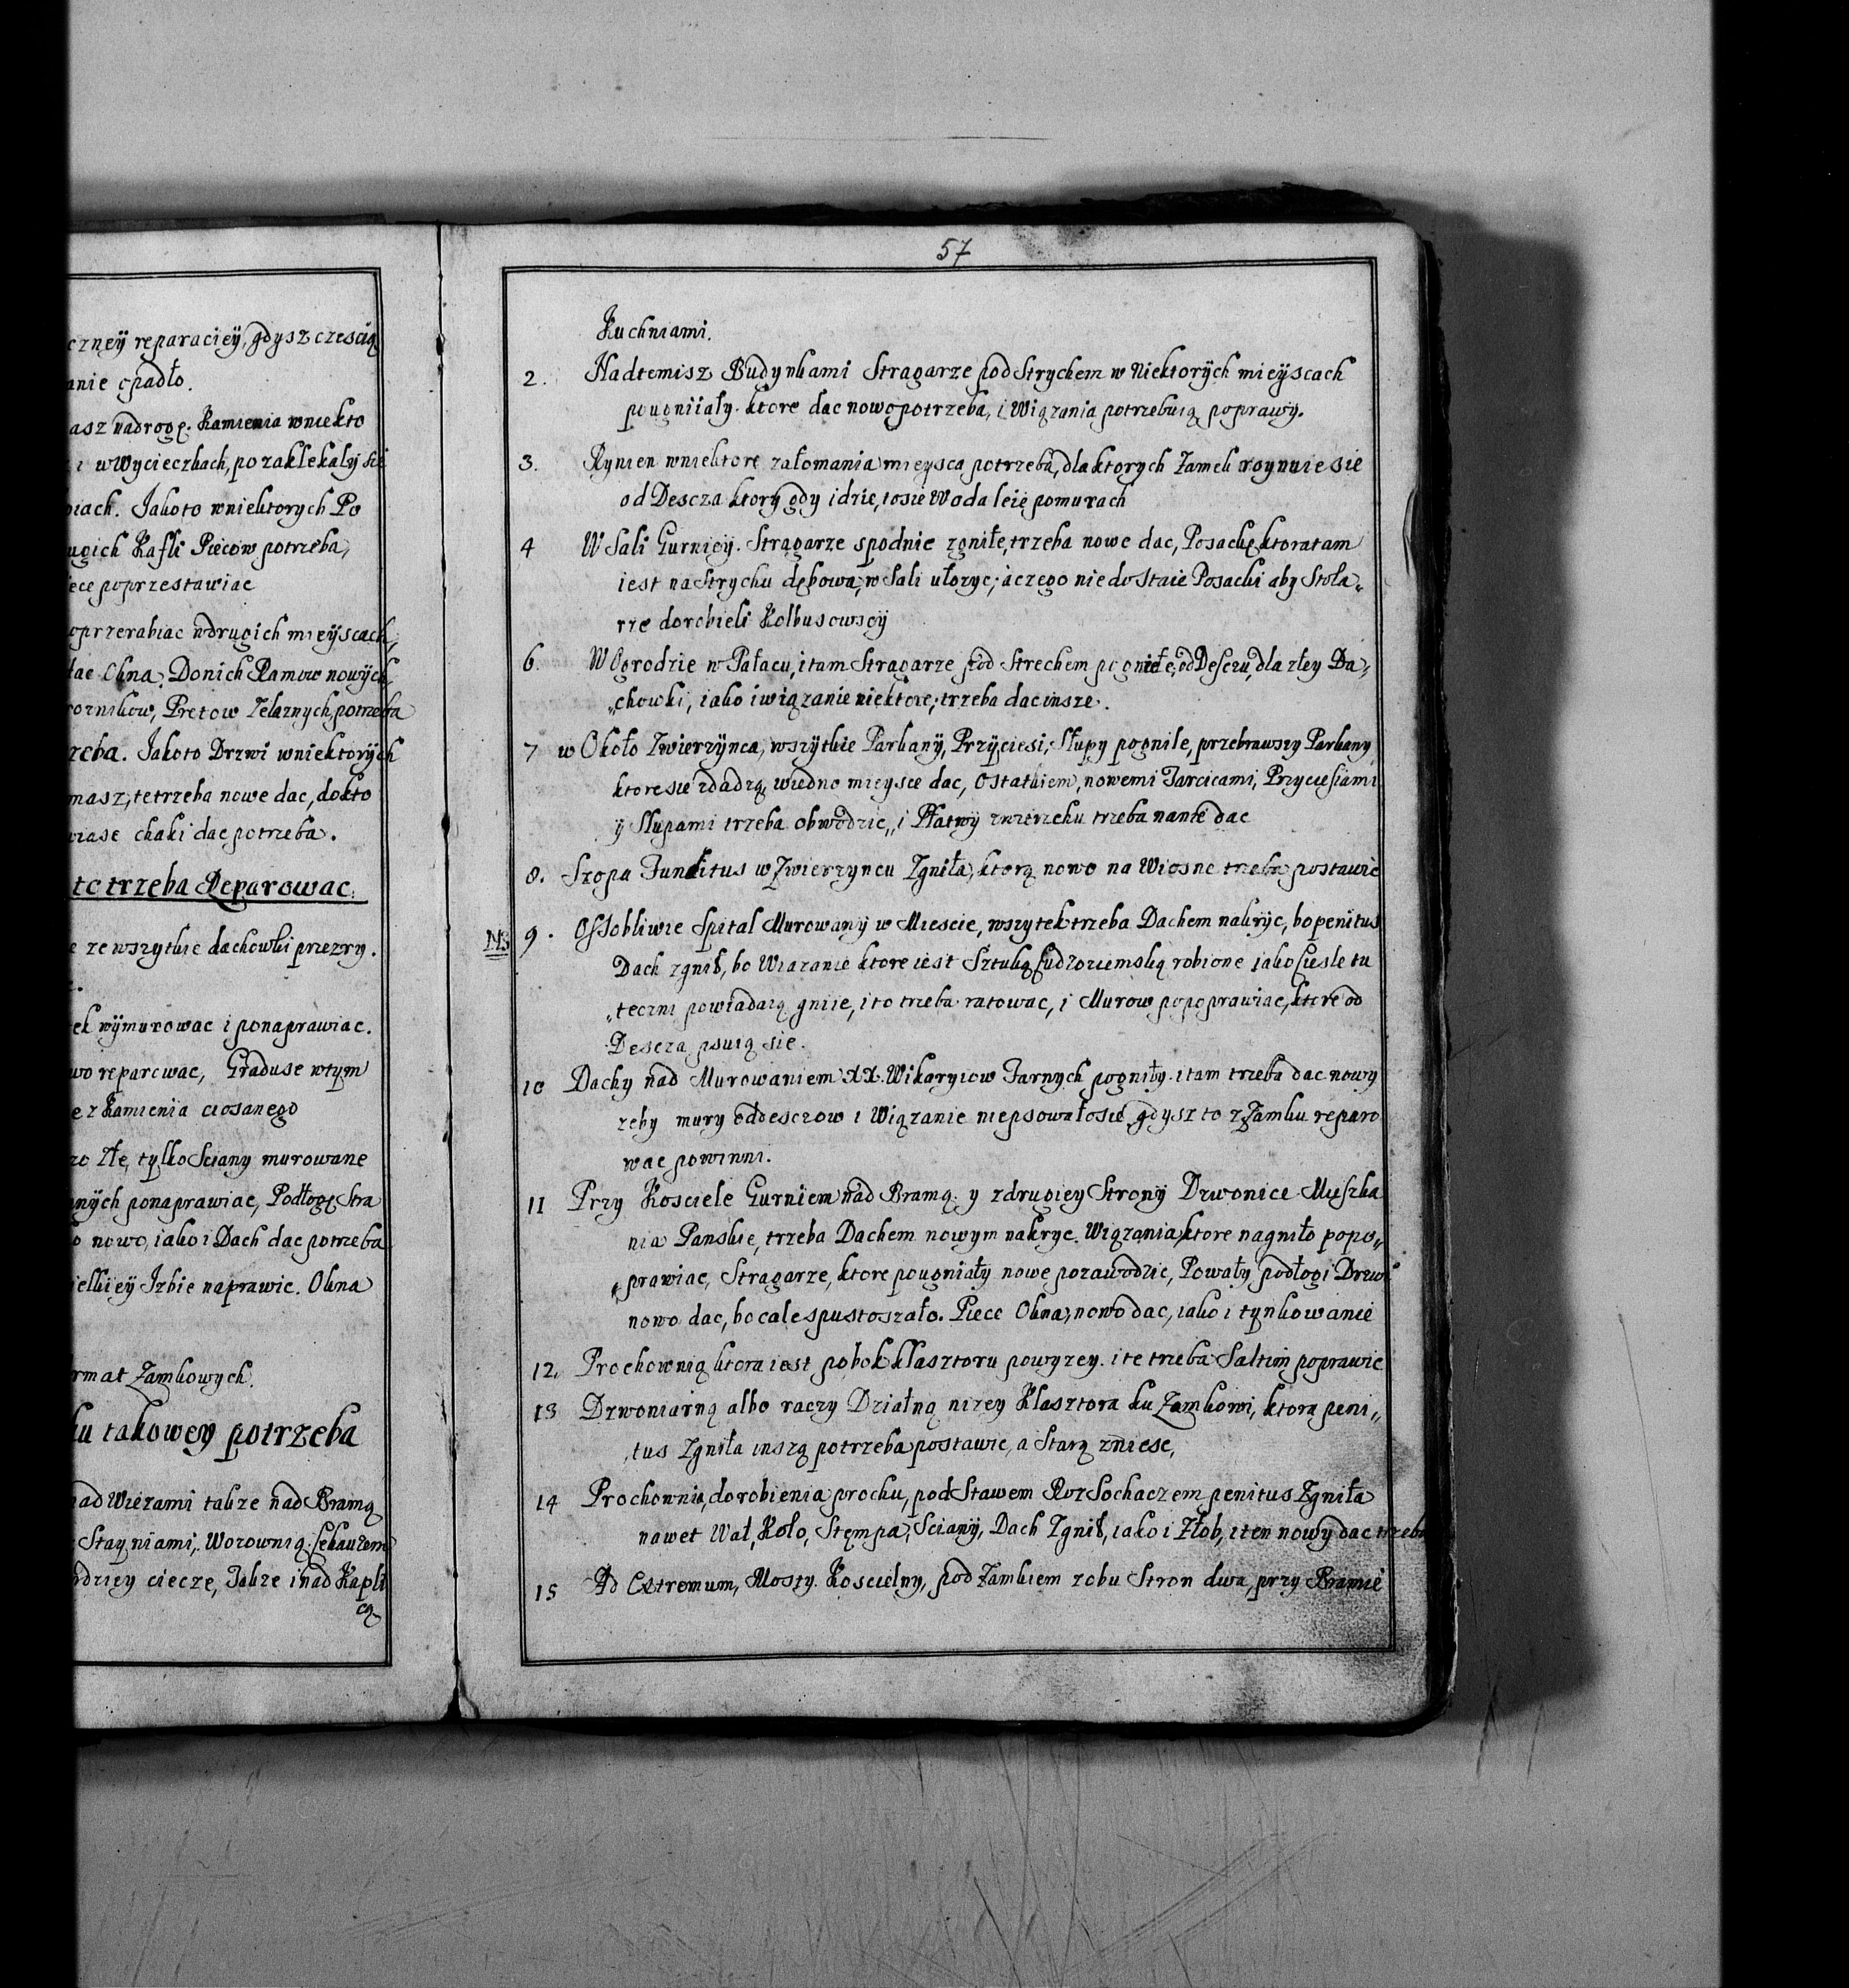 czney reparaciey, gdysz czescią
anie opadło.
asz nadrogę. Kamienia wniekto
i w Wycieczkach, pozaklekały się
piach. Jakoto wniektorych Po
ugich Kafli Piecow potrzeba,
iece poprzestawiac
oprzerabiac ndrugich mieyscach,
dac Okna. Donich Ramow nowych,
rornikow, Pretow Zelaznych, potrzeba
rzeba. Jakoto Drzwi wniektorych
masz; tetrzeba nowe dac, dokto
haki dac potrzeba.
te trzeba Reparowac.
e ze wszytkie dachowki przezry.
ek wymurowac i ponaprawiac.
wo reparowac, Graduse wtym
e z Kamienia ciosanego
zo Złe, tylko Sciany murowane
nych ponaprawiac, Podłogę Stra
o nowo, iako i Dach dac potrzeba
ielkiey Izbie naprawic. Okna
rmat Zamkowych.
ku takowey potrzeba
nad Wiezami takze nad Bramą
Stayniami, Wozownią, Lekauzem
rdziey ciecze, Takze i nad Kapli
cą
57
Kuchniami.
2. Nadtemisz Budynkami Stragarze pod Strychem w Niektorych mieyscach
pougniiały. ktore dac nowo potrzeba, i Wiązania potrzebuią poprawy.
3. Rynien wniektore załomania mieysca potrzeba, dla ktorych Zamek roynuie sie
od Descza ktory gdy idzie, to sie Woda leię pomurach
4 W Sali Gurniey. Strągarze spodnie zgniłe, trzeba nowe dac, Posackę ktora tam
iest na Strychu dębowa, w Sali ułozyc; a czego nie dostaie Posacki aby Stola„
rze dorobieli Kolbusowscy
6. W Ogrodzie w Pałacu, i tam Stragarze pod Strechem pogniełę, od Desczu, dla złey Da„
„chowki, iako i wiązanie niektore; trzeba dac insze.
7 w Około Zwierzynca, wszytkie Parkany, Przyciesi, Słupy pognile, przebrawszy Parkany
ktore sie zdadzą, wiedno mieysce dac, Ostatkiem, nowemi Tarcicami, Przyciesiami
y Słupami trzeba obwodzic„ i Płatwy zwierzchu trzeba nanie dac
8. Szopa Funditus w Zwierzyncu Zgniła, ktorą nowo na Wiosne trzeba postawic
NB 9. Ossobliwie Spital Murowany w Miescie, wszytek trzeba Dachem nakryc, bo penitus
Dach zgnił, bo Wiązanie ktore iest Sztuką Cudzoziemską robione iako Ciesle tu
„teczni powiadaią gniie, i to trzeba ratowac, i Murow popoprawiac, ktore od
Descza psuią sie.
10 Dachy nad Murowaniem XX. Wikaryiow Farnych pogniły. i tam trzeba dac nowy
zeby mury oddesczow i Wiązanie niepsowało sie, gdysz to z Zamku reparo
wac powinni.
11 Przy Kosciele Gurniem nad Bramą. y zdrugiey Strony Dzwonice Mięszka
nia Panskie, trzeba Dachem nowym nakryc. Wiązania, ktore nagniło popo„
„prawiac, Stragarze, ktore pougniały nowe pozawodzic, Powały podłogi Drzwi
nowo dac, bo cale spustoszało. Piece Okna, nowo dac, iako i tynkowanie
12. Prochownią ktora iest pobok klasztoru powyzey. i te trzeba Saltim poprawic
13 Dzwoniarną albo raczy Działną nizey Klasztora ku Zamkowi, ktora peni„
„tus Zgniła inszą potrzeba postawic, a Starą zniesc,
14 Prochownia, do robienia prochu, pod Stawem Rozsochaczem penitus Zgniła
nawet Wał, Koło, Stęmpa, Sciany, Dach Zgnił, iako i Złob, i ten nowy dac trzeba
15 Ad Extremum, Mosty. Koscielny, pod Zamkiem zobu Stron dwa, przy Bramie